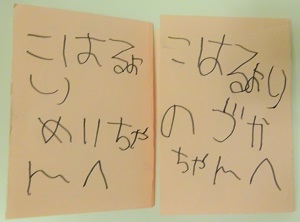 こはるよ
り
めいちゃ
んへ
こはるより
のづか
ちゃんへ